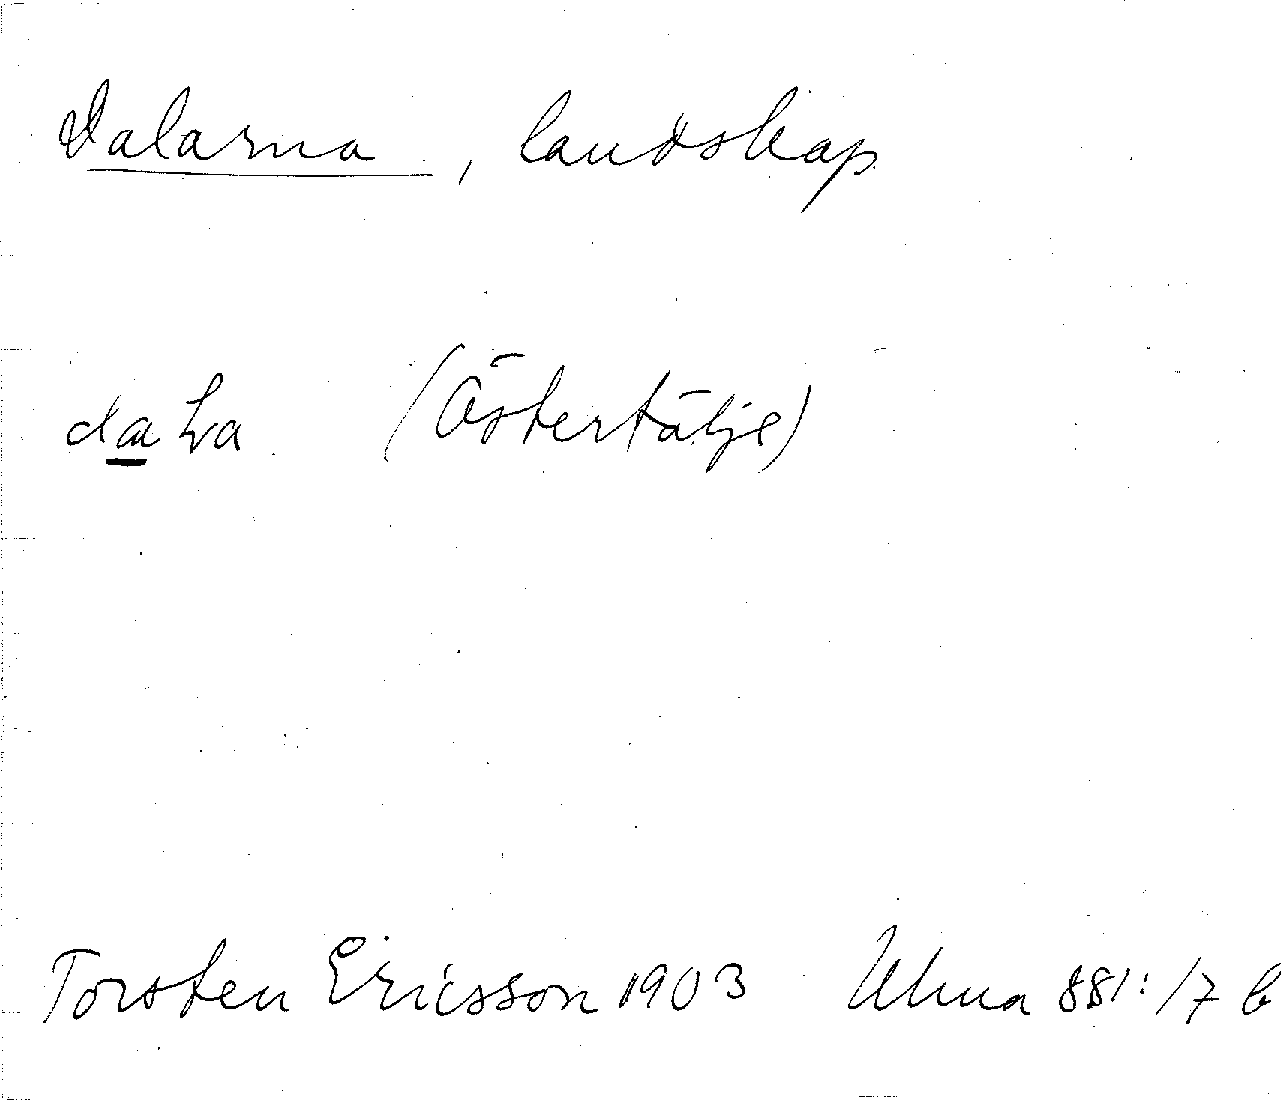 Dalarna, landskap
(Östertälje)
Torsten Ericsson 1903 Ulma 881:17 b